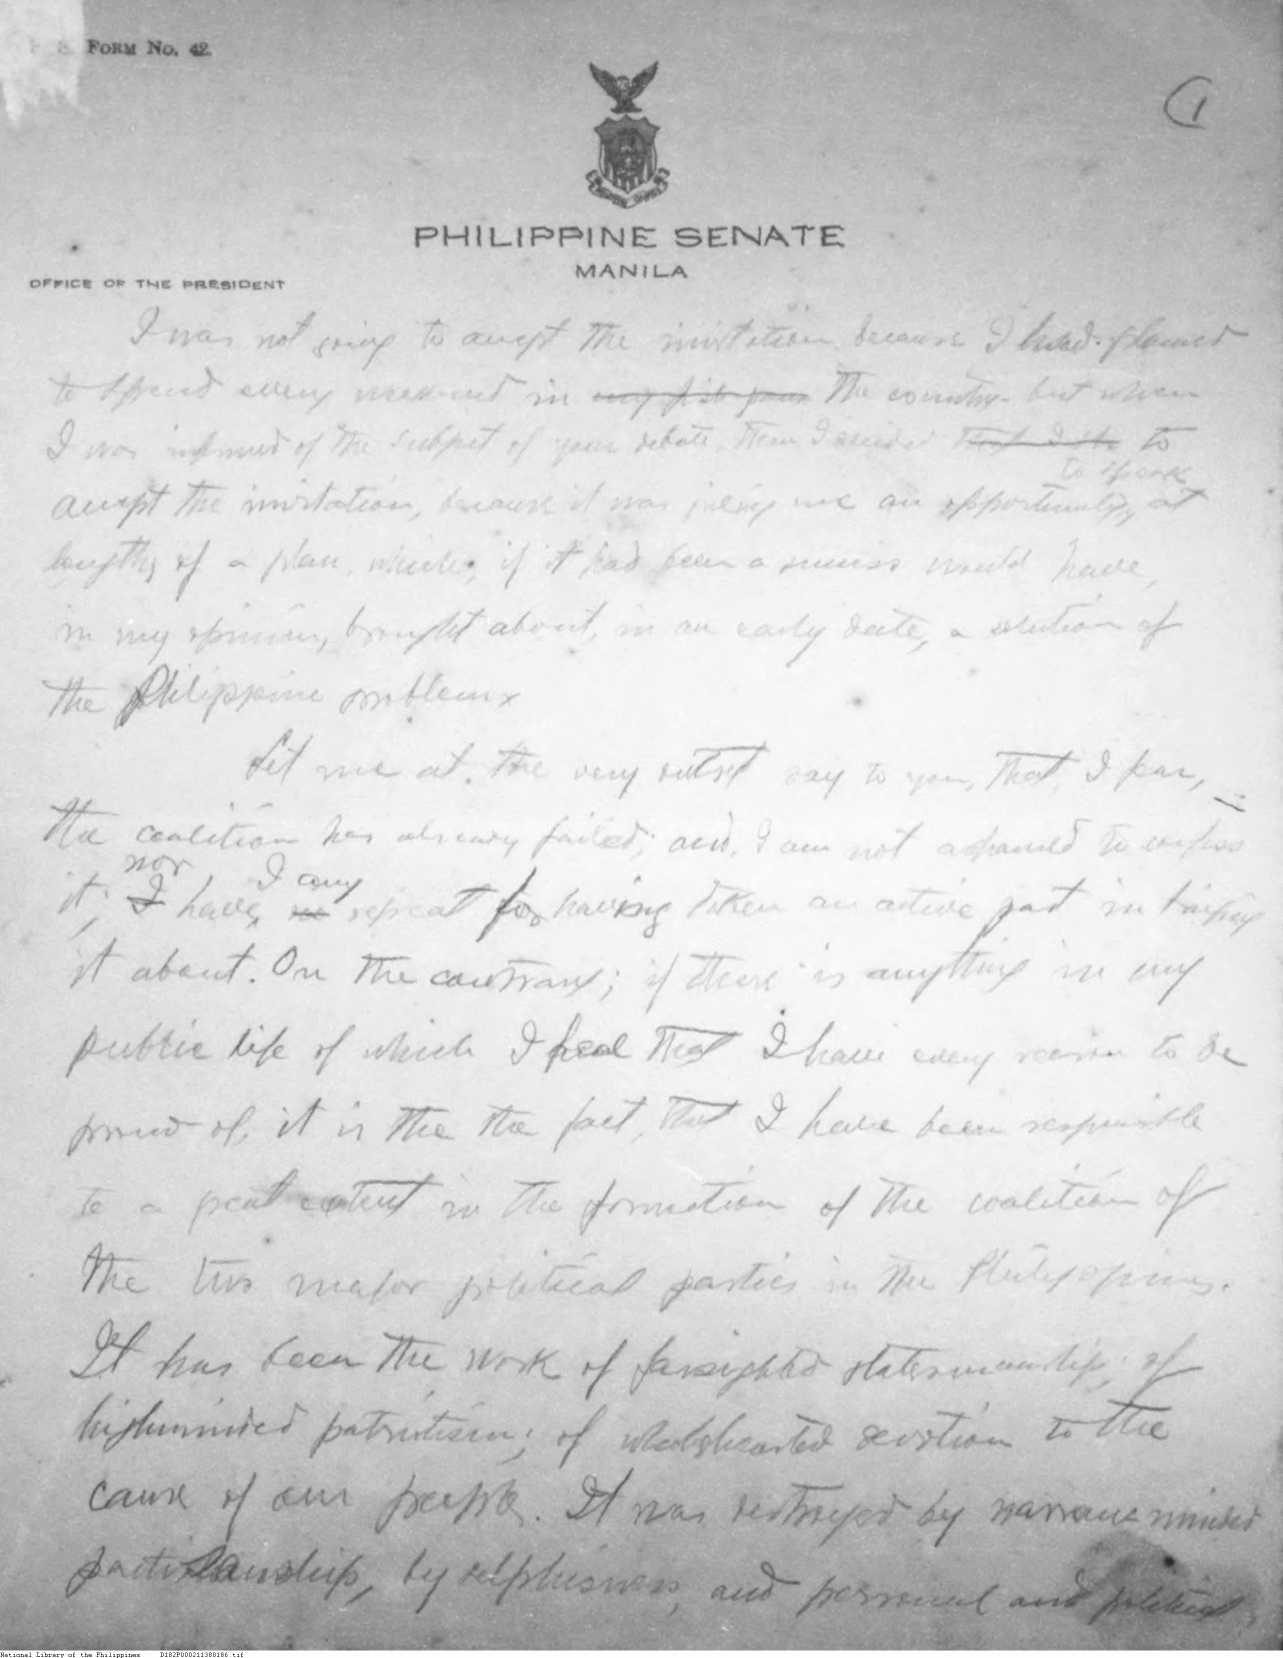 FORM No. 42
1
PHILIPPINE SENATE
MANILA
OFFICE OF THE PRESIDENT
I was not going to accept the invitation because I had planned
to spend every week-end in my the country- but when
I was informed of the subject of your debate, then I decided that I to
to speak
accept the invitation, because it was giving me an opportunity, at
length, of a plan, which, if it had been a success would have,
in my opinion, brought about, in an early date, a solution of
the Philippine problem
Let me at, the very outset say to you, that, I fear,
the coalition has already failed; and, I am not ashamed to confess
nor I any
it; I have, no repeat for having taken an active part in bringing
it about. On the contrary; if there is anything in my
public life of which I feel that I have every reason to be
proud of, it is the the fact, that I have been responsible
to a great extent in the formation of the coalition of
the two major political parties in the Philippines.
It has been the work of farsighted statesmanship; of
highminded patriotism; of wholehearted devotion to the
cause of our people. It was destroyed by narrow minded
partisanship, by selfishness, and personal and political
National Library of the Philippines D182P000211388186.tif